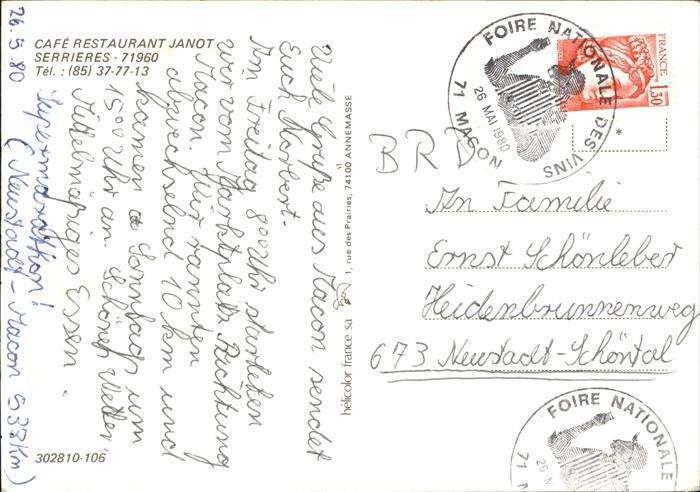 CAFÉ RESTAURANT JANOT
SERRIERES - 71960
Tél. : (85) 37-77-13
26.5.80
Viele Grüße aus Macon sendet
Euch Norbert.
Am Freitag 8⁰⁰Uhr starteten
wir vom Marktplatz Richtung
Macon. Wir rannten
abwechselnd 10 km und
kamen a Sonntags um
15⁰⁰ Uhr an. Schönes Wetter
Mittelmäßiges Essen.
Supermarathon!
(Neustadt - Macon 537km)
302810-106
helicolor france sa
1, rue des Prairies, 74100 ANNEMASSE
FOIRE NATIONALE DES VINS
26 MAI 1980
71 MACON
FRANCE
1,30
*
BRD
An Familie
Ernst Schönleber
Heidenbrunnenweg
673 Neustadt-Schöntal
FOIRE NATIONALE
26 M
71 M